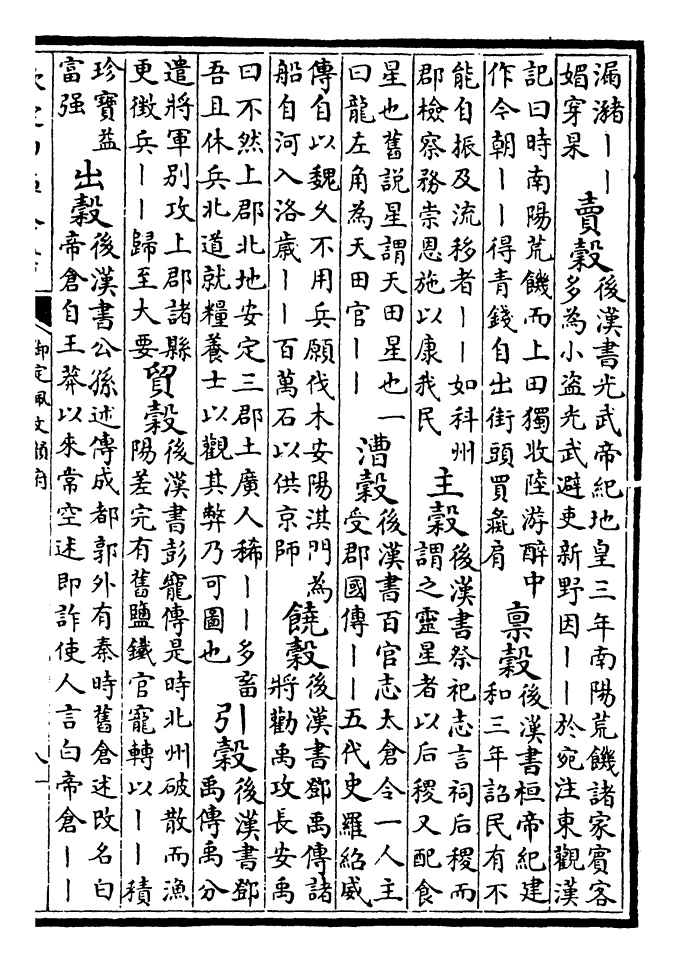 漏潴丨丨
媚穿杲
賣穀
後漢書光武帝紀地皇三年南陽荒饑諸家賓客
多為小盗光武避吏新野因丨丨於宛注東觀漢
記曰時南陽荒饑而上田獨收陸游醉中
作今朝丨丨得青錢自出街頭買彘肩
禀穀
後漢書桓帝紀建
和三年詔民有不
能自振及流移者丨丨如科州
郡檢察務崇恩施以康我民
主穀
後漢書祭祀志言祠后稷而
謂之靈星者以后稷又配食
星也舊説星謂天田星也一
曰龍左角為天田官丨丨
漕穀
後漢書百官志太倉令一人主
受郡國傳丨丨五代史羅紹威
傳自以魏久不用兵願伐木安陽淇門為
船自河入洛歳丨丨百萬石以供京師
饒穀
後漢書鄧禹傳諸
將勸禹攻長安禹
曰不然上郡北地安定三郡土廣人稀丨丨多畜
吾且休兵北道就糧養士以觀其弊乃可圖也
引穀
後漢書鄧
禹傳禹分
遣將軍别攻上郡諸縣
更徴兵丨丨歸至大要
貿穀
後漢書彭寵傳是時北州破散而漁
陽差完有舊鹽鐵官寵轉以丨丨積
珍寶益
富强
出穀
後漢書公孫述傳成都郭外有秦時舊倉述改名白
帝倉自王莽以來常空述即詐使人言白帝倉丨丨
御定佩文韻府